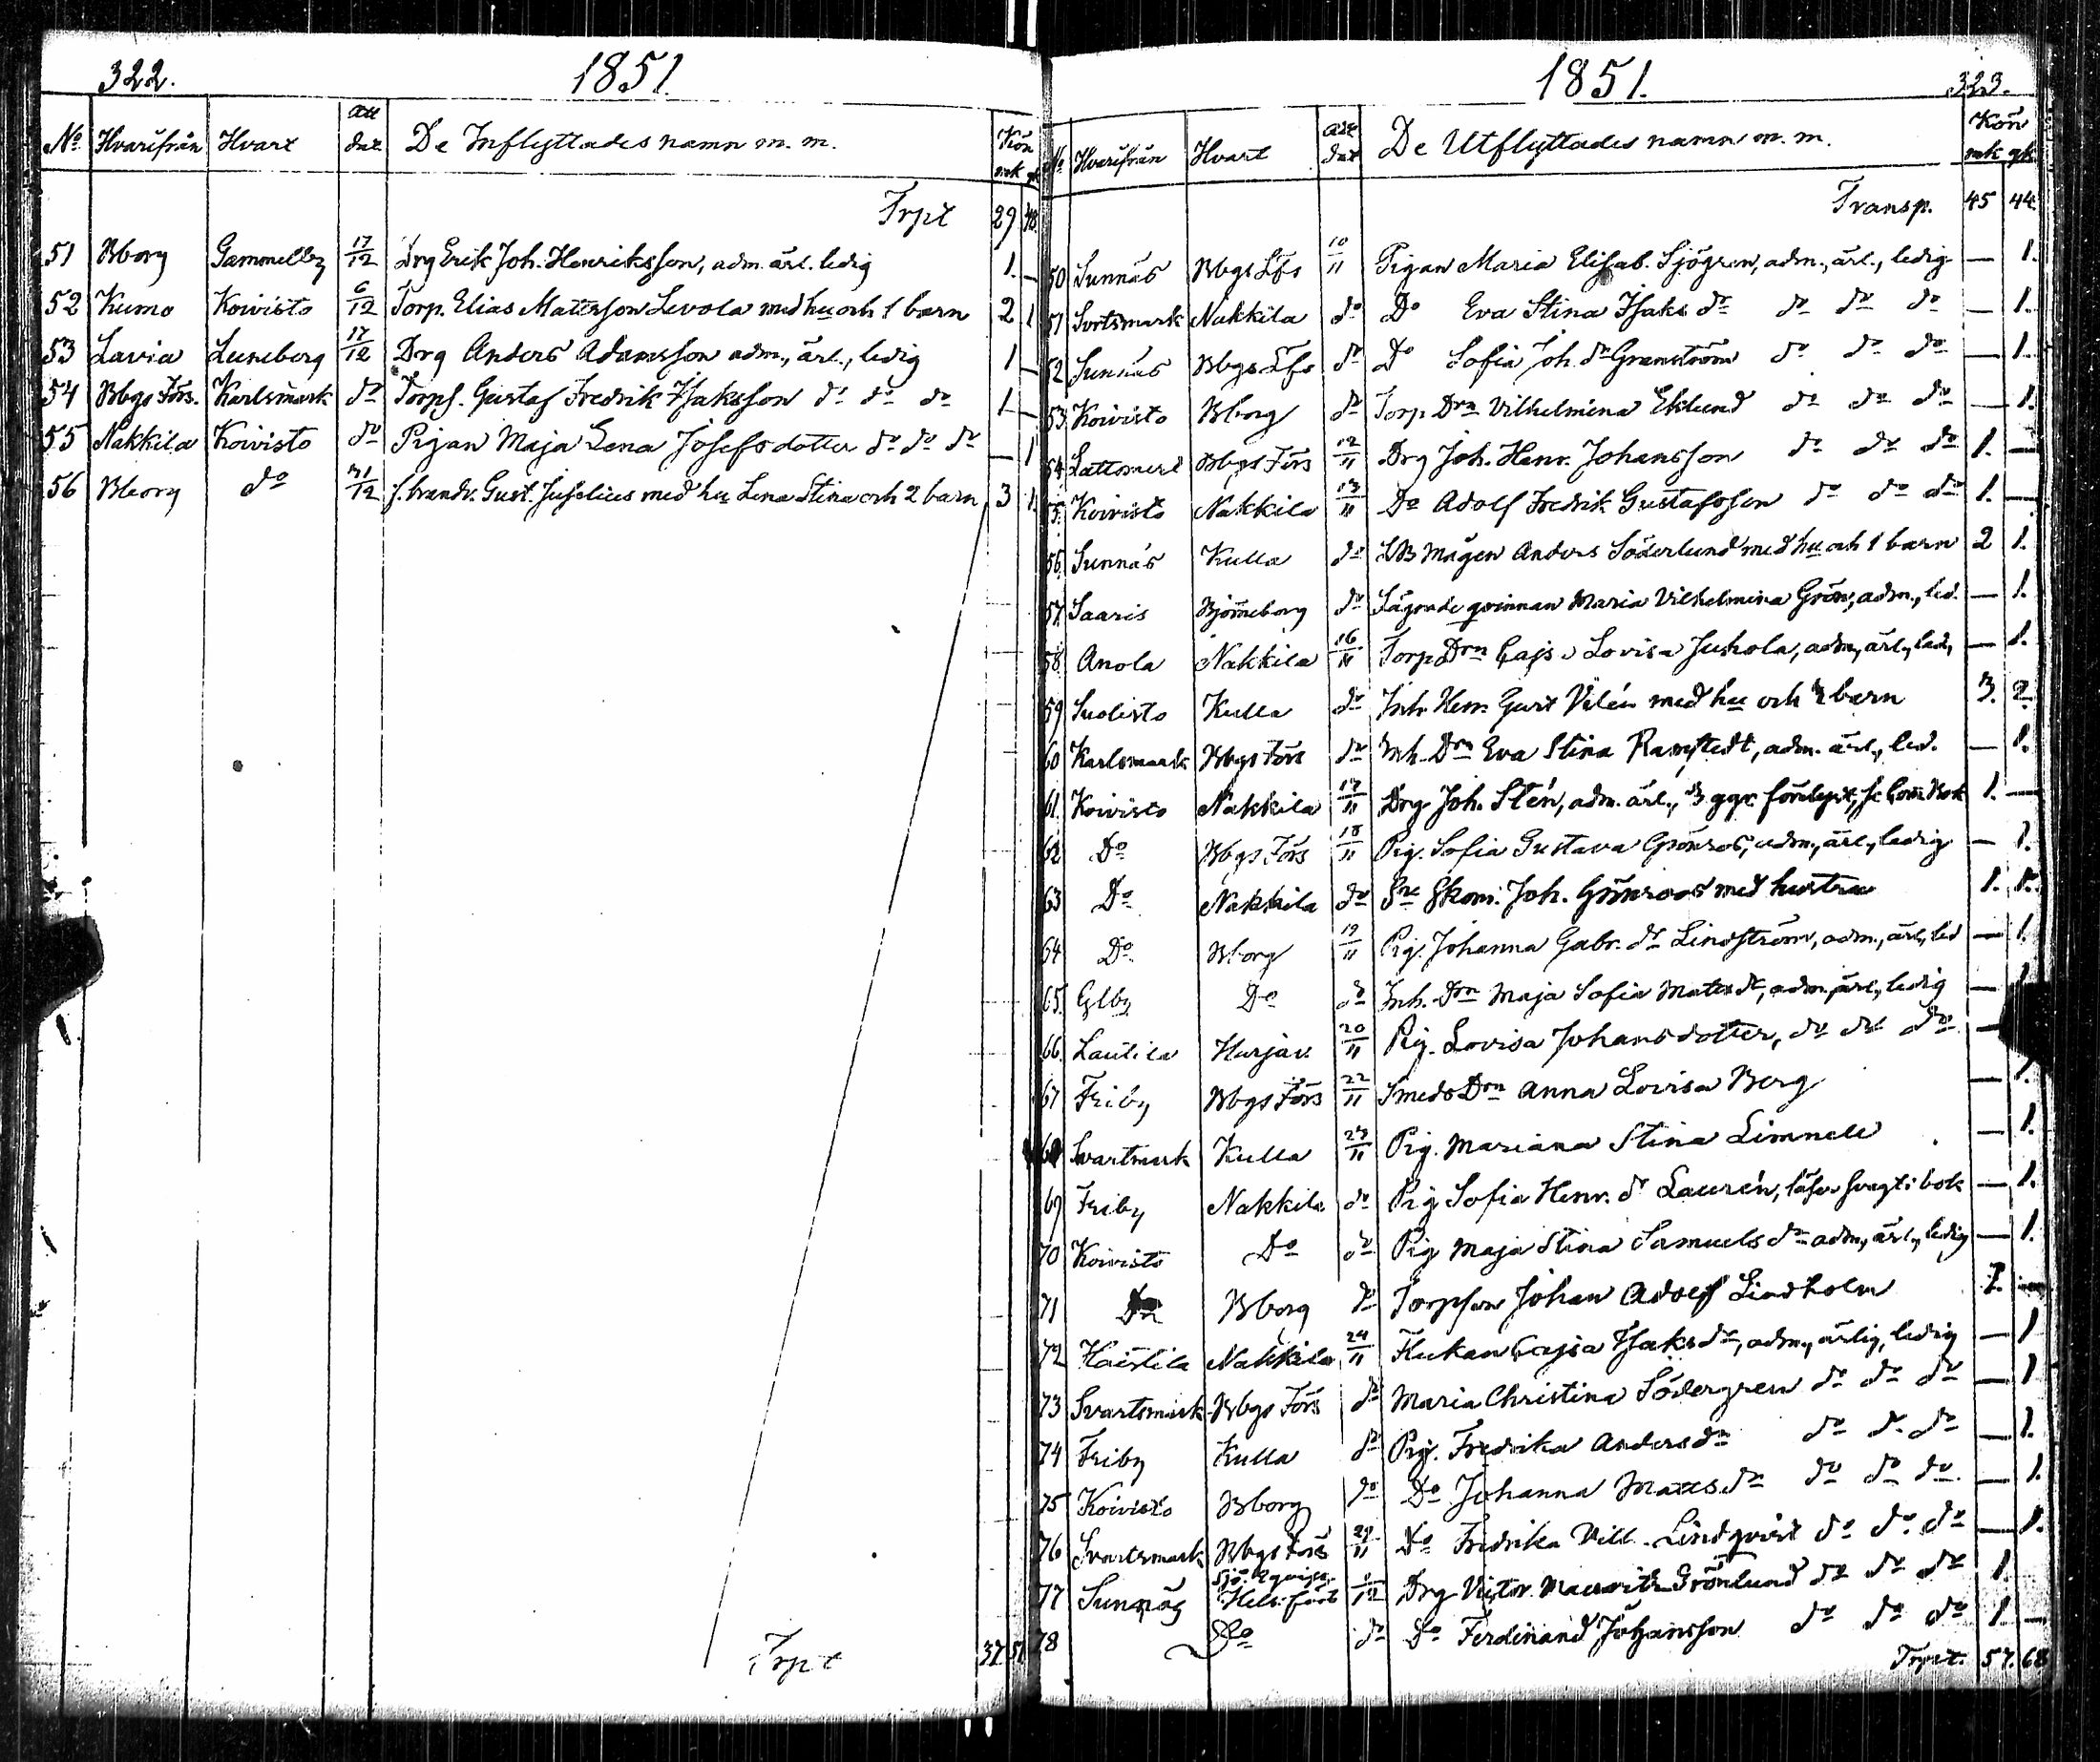 322. 1851.
No Hvarifrån Hvart Att dat De Inflyttades namn m. m. Kön mk qk
Trpt 29 48.
51 Bborg Gammelby 17/12 Drg Erik Joh. Henriksson, adm. ärl. ledig 1. —
52 Kumo Koivisto 6/12 Torp. Elias Matsson Levola med hu och 1 barn 2 1
53 Lavia Luneborg 17/12 Drg Anders Adamsson adm., ärl., ledig 1 —
54 Bbgs Förs. Karlsmark do Torps. Gustaf Fredrik Isaksson do do do 1 —
55 Nakkila Koivisto do Pigan Maja Lena Josefsdotter do do do — 1
56 Bborg do 31/12 f. brandv. Gust. Juselius med hu Lena Stina och 2 barn 3 1.
Trpt 37 51
1851. 323.
No Hvarifrån Hvart Att dat De Utflyttades namn m. m. Kön mk qk
Transp. 45 44
50 Sunnäs Bbgs Lfs 10/11 Pigan Maria Elisab. Sjögren, adm., ärl., ledig — 1.
51 Svartsmark Nakkila do Do Eva Stina Isaks dr do do do — 1.
52 Sunnäs Bbgs Lfs do Do Sofia Joh. dr Granström do do do — 1.
53 Koivisto Bborg do Torp Drn Vilhelmina Eklund do do do — 1.
54 Lattomeri Bbgs Förs 12/11 Drg Joh. Henr. Johansson do do do 1. —
55. Koivisto Nakkila 13/11 Do Adolf Fredrik Gustafsson do do do 1. —
56. Sunnäs Kulla do LB Mågen Anders Söderlund med hu och 1 barn 2 1.
57. Saaris Björneborg do Lägende qvinnan Maria Vilhelmina Grön, adm., led. — 1.
58 Anola Nakkila 16/11 Torp Drn Cajsa Lovisa Juhola, adm., ärl., led. — 1.
59 Suolisto Kulla do Inh. Hem. Gust Vilén med hu och 3 barn 3. 2.
60 Karlsmark Bbgs Förs do Inh. Drn Eva Stina Ramstedt, adm. ärl., led. — 1.
61 Koivisto Nakkila 17/11 Drg Joh. Stén, adm. ärl., 3 ggr förelyst, se Com. Bok 1. —
62 Do Bbgs Förs 18/11 Pig. Sofia Gustava Grönros, adm., ärl., ledig — 1.
63 Do Nakkila do Skom. Joh. Grönroos med hustru 1. 1.
64 Do Bborg 19/11 Pig. Johanna Gabr. dr Lindström, adm., ärl., led — 1.
65. Glby Do do Inh. Drn Maja Sofia Mats dr, adm., ärl., ledig — 1
66. Lautila Harjav. 20/11 Pig. Lovisa Johansdotter, do do do —
67 Friby Bbgs Förs 22/11 Smeds Drn Anna Lovisa Berg — 1.
68 Svartmark Kulla 23/11 Pig. Mariana Stina Limnell — 1.
69 Friby Nakkila do Pig Sofia Henr. dr Laurén, läser svagt i bok — 1.
70 Koivisto Do do Pig Maja Stina Samuels dr adm., ärl., ledig — 1.
71 Do Bborg do Torpson Johan Adolf Lindholm 1. —
72 Haistila Nakkila 24/11 Flickan Cajsa Isaks dr, adm., ärlig, ledig — 1
73 Svartsmark Bbgs Förs do Maria Christina Södergren do do do — 1
74 Friby Kulla do Pig. Fredrika Anders dr do do do — 1.
75 Koivisto Bborg do Do Johanna Matts dr do do do — 1.
76 Svartsmark Bbgs Förs 29/11 Do Fredrika Vilh. Lindqvist do do do — 1.
77 Sunnäs Sjö. Eqvipa. Hels. förs 1/12 Drg Victor Mauritz Grönlund do do do 1.
78 Do do Do Ferdinand Johansson do do do 1. —
Trpt. 57. 68